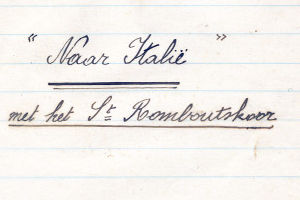 " Naar Italië "
met het St Romboutskoor